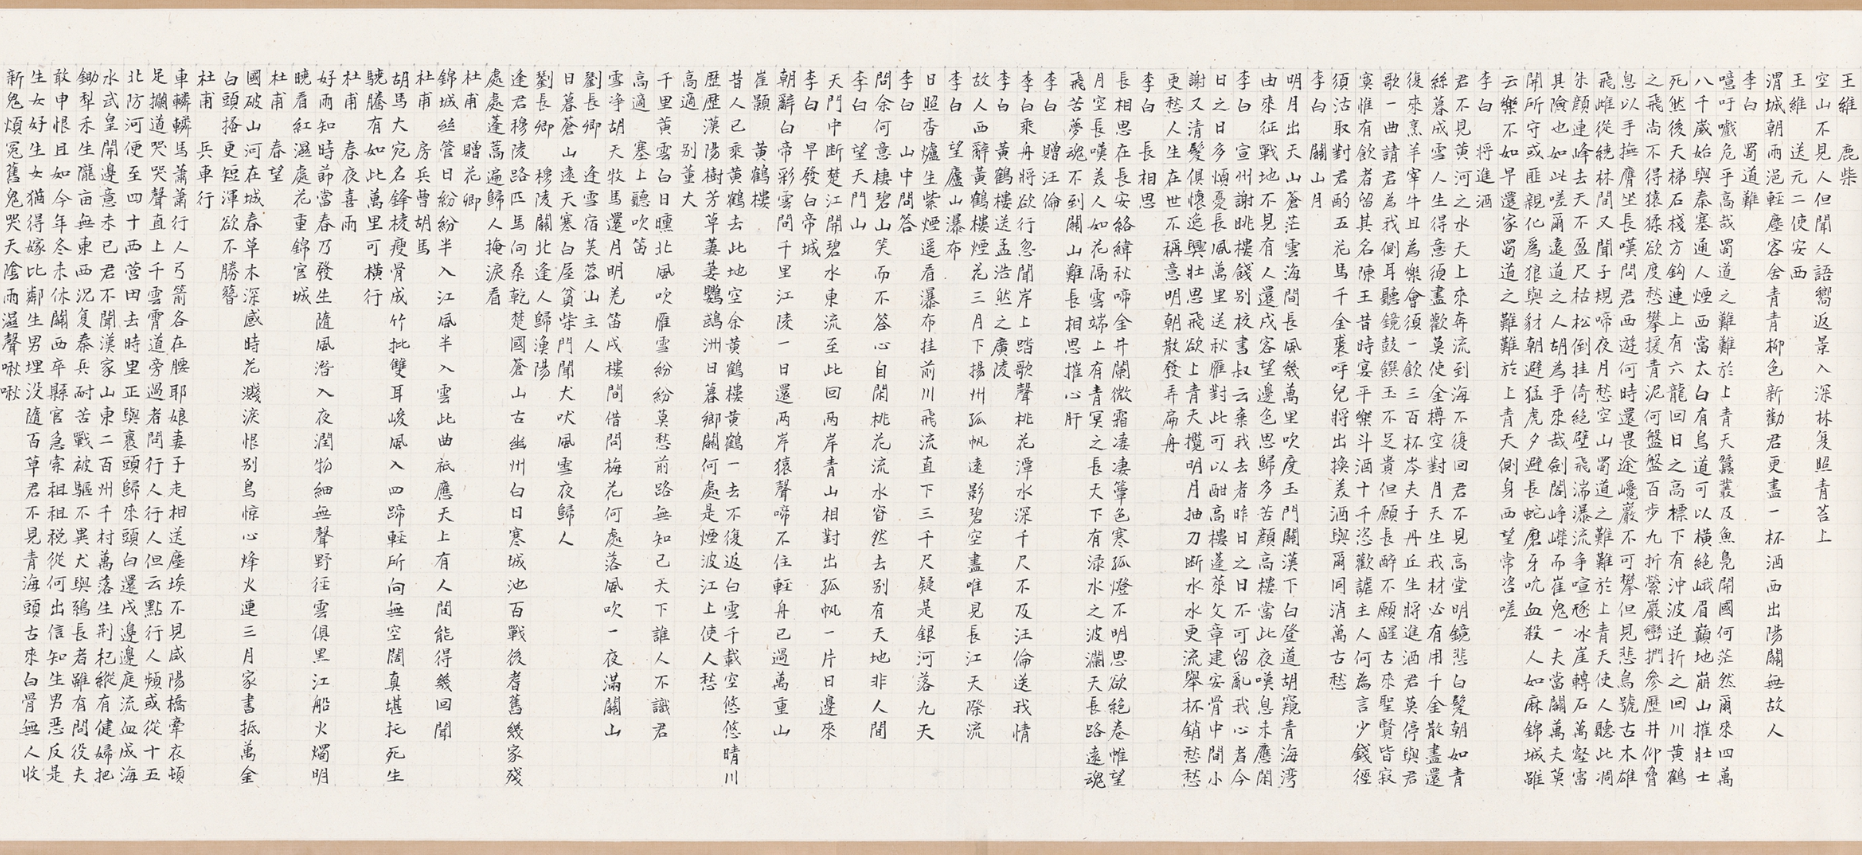 王維　鹿柴
空山不見人但聞人語響返景入深林复照青苔上
王維　送元二使安西
渭城朝雨浥輕塵客舍青青柳色新勸君更盡一杯酒西出陽關無故人
李白　蜀道難
噫吁嚱危乎高哉蜀道之難難於上青天蠶叢及魚鳧開國何茫然爾來四萬
八千歲始與秦塞通人煙西當太白有鳥道可以橫絕峨眉巔地崩山摧壯士
死然後天梯石棧方鉤連上有六龍回日之高標下有沖波逆折之回川黃鶴
之飛尚不得猿猱欲度愁攀援青泥何盤盤百步九折縈巖巒捫參歷井仰脅
息以手撫膺坐長嘆問君西遊何時還畏途巉巖不可攀但見悲鳥號古木雄
飛雌從繞林間又聞子規啼夜月愁空山蜀道之難難於上青天使人聽此凋
朱顏連峰去天不盈尺枯松倒挂倚絕壁飛湍瀑流爭喧豗冰崖轉石萬壑雷
其險也如此嗟爾遠道之人胡為乎來哉劍閣崢嶸而崔嵬一夫當關萬夫莫
開所守或匪親化為狼與豺朝避猛虎夕避長蛇磨牙吮血殺人如麻錦城雖
云樂不如早還家蜀道之難難於上青天側身西望常咨嗟
李白　將進酒
君不見黃河之水天上來奔流到海不復回君不見高堂明鏡悲白髮朝如青
絲暮成雪人生得意須盡歡莫使金樽空對月天生我材必有用千金散盡還
復來烹羊宰牛且為樂會須一飲三百杯岑夫子丹丘生將進酒君莫停與君
歌一曲請君為我側耳聽鐘鼓饌玉不足貴但願長醉不願醒古來聖賢皆寂
寞惟有飲者留其名陳王昔時宴平樂斗酒十千恣歡謔主人何為言少錢徑
須沽取對君酌五花馬千金裘呼兒將出換美酒與爾同消萬古愁
李白　關山月
明月出天山蒼茫雲海間長風幾萬里吹度玉門關漢下白登道胡窺青海灣
由來征戰地不見有人還戍客望邊色思歸多苦顏高樓當此夜嘆息未應閑
李白　宣州謝朓樓餞別校書叔云棄我去者昨日之日不可留亂我心者今
日之日多煩憂長風萬里送秋雁對此可以酣高樓蓬萊文章建安骨中間小
謝又清髮俱懷逸興壯思飛欲上青天攬明月抽刀断水水更流舉杯銷愁愁
更愁人生在世不稱意明朝散發弄扁舟
李白　長相思
長相思在長安絡緯秋啼金井闌微霜凄凄簟色寒孤燈不明思欲絕卷帷望
月空長嘆美人如花隔雲端上有青冥之長天下有淥水之波瀾天長路遠魂
飛苦夢魂不到關山難長相思摧心肝
李白　贈汪倫
李白乘舟將欲行忽聞岸上踏歌聲桃花潭水深千尺不及汪倫送我情
李白　黃鶴樓送孟浩然之廣陵
故人西辭黃鶴樓煙花三月下揚州孤帆遠影碧空盡唯見長江天際流
李白　望廬山瀑布
日照香爐生紫煙遥看瀑布挂前川飛流直下三千尺疑是銀河落九天
李白　山中問答
問余何意棲碧山笑而不答心自閑桃花流水窅然去別有天地非人間
李白　望天門山
天門中断楚江開碧水東流至此回两岸青山相對出孤帆一片日邊來
李白　早發白帝城
朝辭白帝彩雲間千里江陵一日還两岸猿聲啼不住輕舟已過萬重山
崔顥　黃鶴樓
昔人已乘黃鶴去此地空余黃鶴樓黃鶴一去不復返白雲千載空悠悠晴川
歷歷漢陽樹芳草萋萋鸚鵡洲日暮鄉關何處是煙波江上使人愁
高適　別董大
千里黃雲白日曛北風吹雁雪紛紛莫愁前路無知己天下誰人不識君
高適　塞上聽吹笛
雪淨胡天牧馬還月明羌笛戍樓間借問梅花何處落風吹一夜滿關山
劉長卿　逢雪宿芙蓉山主人
日暮蒼山遠天寒白屋貧柴門聞犬吠風雪夜歸人
劉長卿　穆陵關北逢人歸漁陽
逢君穆陵路匹馬向桑乾楚國蒼山古幽州白日寒城池百戰後耆舊幾家殘
處處蓬蒿遍歸人掩淚看
杜甫　贈花卿
錦城絲管日紛紛半入江風半入雲此曲衹應天上有人間能得幾回聞
杜甫　房兵曹胡馬
胡馬大宛名鋒棱瘦骨成竹批雙耳峻風入四蹄輕所向無空闊真堪托死生
驍騰有如此萬里可橫行
杜甫　春夜喜雨
好雨知時節當春乃發生隨風潛入夜潤物細無聲野徑雲俱黑江船火燭明
曉看紅濕處花重錦官城
杜甫　春望
國破山河在城春草木深感時花濺淚恨別鳥惊心烽火連三月家書抵萬金
白頭搔更短渾欲不勝簪
杜甫　兵車行
車轔轔馬蕭蕭行人弓箭各在腰耶娘妻子走相送塵埃不見咸陽橋牽衣頓
足攔道哭哭聲直上千雲霄道旁過者問行人行人但云點行頻或從十五
北防河便至四十西營田去時里正與裹頭歸來頭白還戍邊邊庭流血成海
水武皇開邊意未已君不聞漢家山東二百州千村萬落生荆杞縱有健婦把
鋤犁禾生隴亩無東西況复秦兵耐苦戰被驅不異犬與鷄長者雖有問役夫
敢申恨且如今年冬未休關西卒縣官急索租租税從何出信知生男恶反是
生女好生女猶得嫁比鄰生男埋没隨百草君不見青海頭古來白骨無人收
新鬼煩冤舊鬼哭天陰雨濕聲啾啾